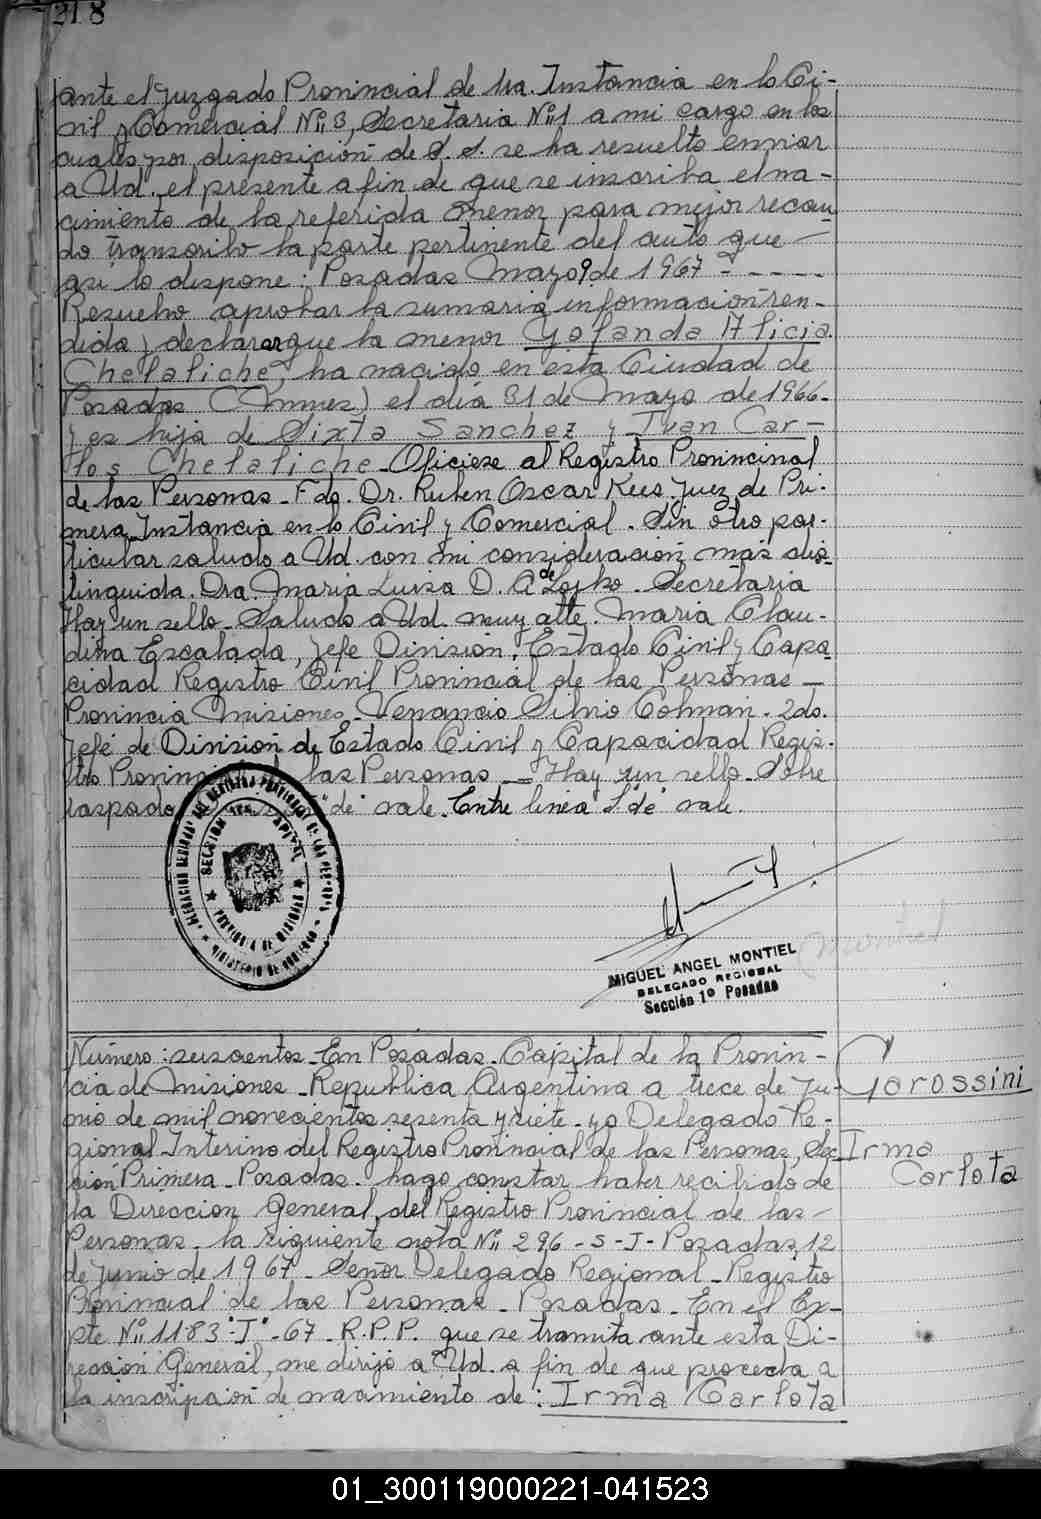 218
ante el Juzgado Provincial de 1ra. Instancia en lo Ci-
vil y Comercial Nº 3, Secretaria Nº 1 a mi cargo en los
cuales por disposición de S. S. se ha resuelto enviar
a Ud. el presente a fin de que se inscriba el na-
cimiento de la referida menor para mejor recau
do transcribo la parte pertinente del auto que
asi lo dispone: Posadas Mayo 9 de 1967 - - - - -
Resuelvo aprobar la sumaria informacion ren-
dida y declarar que la menor Yolanda Alicia
Chelaliche, ha nacido en esta Ciudad de
Posadas (Mnes) el dia 31 de Mayo de 1966-
y es hija de Sixta Sanchez y Juan Car-
los Chelaliche - Oficiese al Registro Provincinal
de las Personas - Fdo. Dr. Ruben Oscar Rees Juez de Pri-
mera Instancia en lo Civil y Comercial - Sin otro par-
ticular saludo a Ud. con mi consideracion mas dis-
tinguida. Dra. Maria Luisa D. A de Lojko - Secretaria
Hay un sello - Saludo a Ud. muy atte. Maria Clau-
dina Escalada, Jefe Division, Estado Civil y Capa
cidad Registro Civil Provincial de las Personas -
Provincia Misiones - Venancio Silvio Colman - 2do.
Jefe de Division de Estado Civil y Capacidad Regis-
tro Provincial las Personas - Hay un sello - Sobre
raspado "de" vale. Entre linea "de" vale.
DELEGACION REGIONAL DEL REGISTRO PROVINCIAL DE LAS PERSONAS
SECCION 1ra. CAPITAL
PROVINCIA DE MISIONES
MINISTERIO DE GOBIERNO
MIGUEL ANGEL MONTIEL
DELEGADO REGIONAL
Sección 1º Posadas
(Montiel
Número: seiscientos - En Posadas - Capital de la Provin-
cia de Misiones - Republica Argentina a trece de Ju-
nio de mil novecientos sesenta y siete - yo Delegado Re-
gional Interino del Registro Provincial de las Personas, Sec
ción Primera - Posadas - hago constar haber recibido de
la Direccion General del Registro Provincial de las -
Personas - la siguiente nota Nº 296 - S - J - Posadas, 12
de Junio de 1967 - Señor Delegado Regional - Registro
Provincial de las Personas - Posadas - En el Ex-
pte Nº 1183 - "J" - 67 - R.P.P. que se tramita ante esta Di-
reccion General, me dirijo a Ud. a fin de que proceda a
la inscripcion de nacimiento de: Irma Carlota
Garossini
Irma
Carlota
01_300119000221-041523